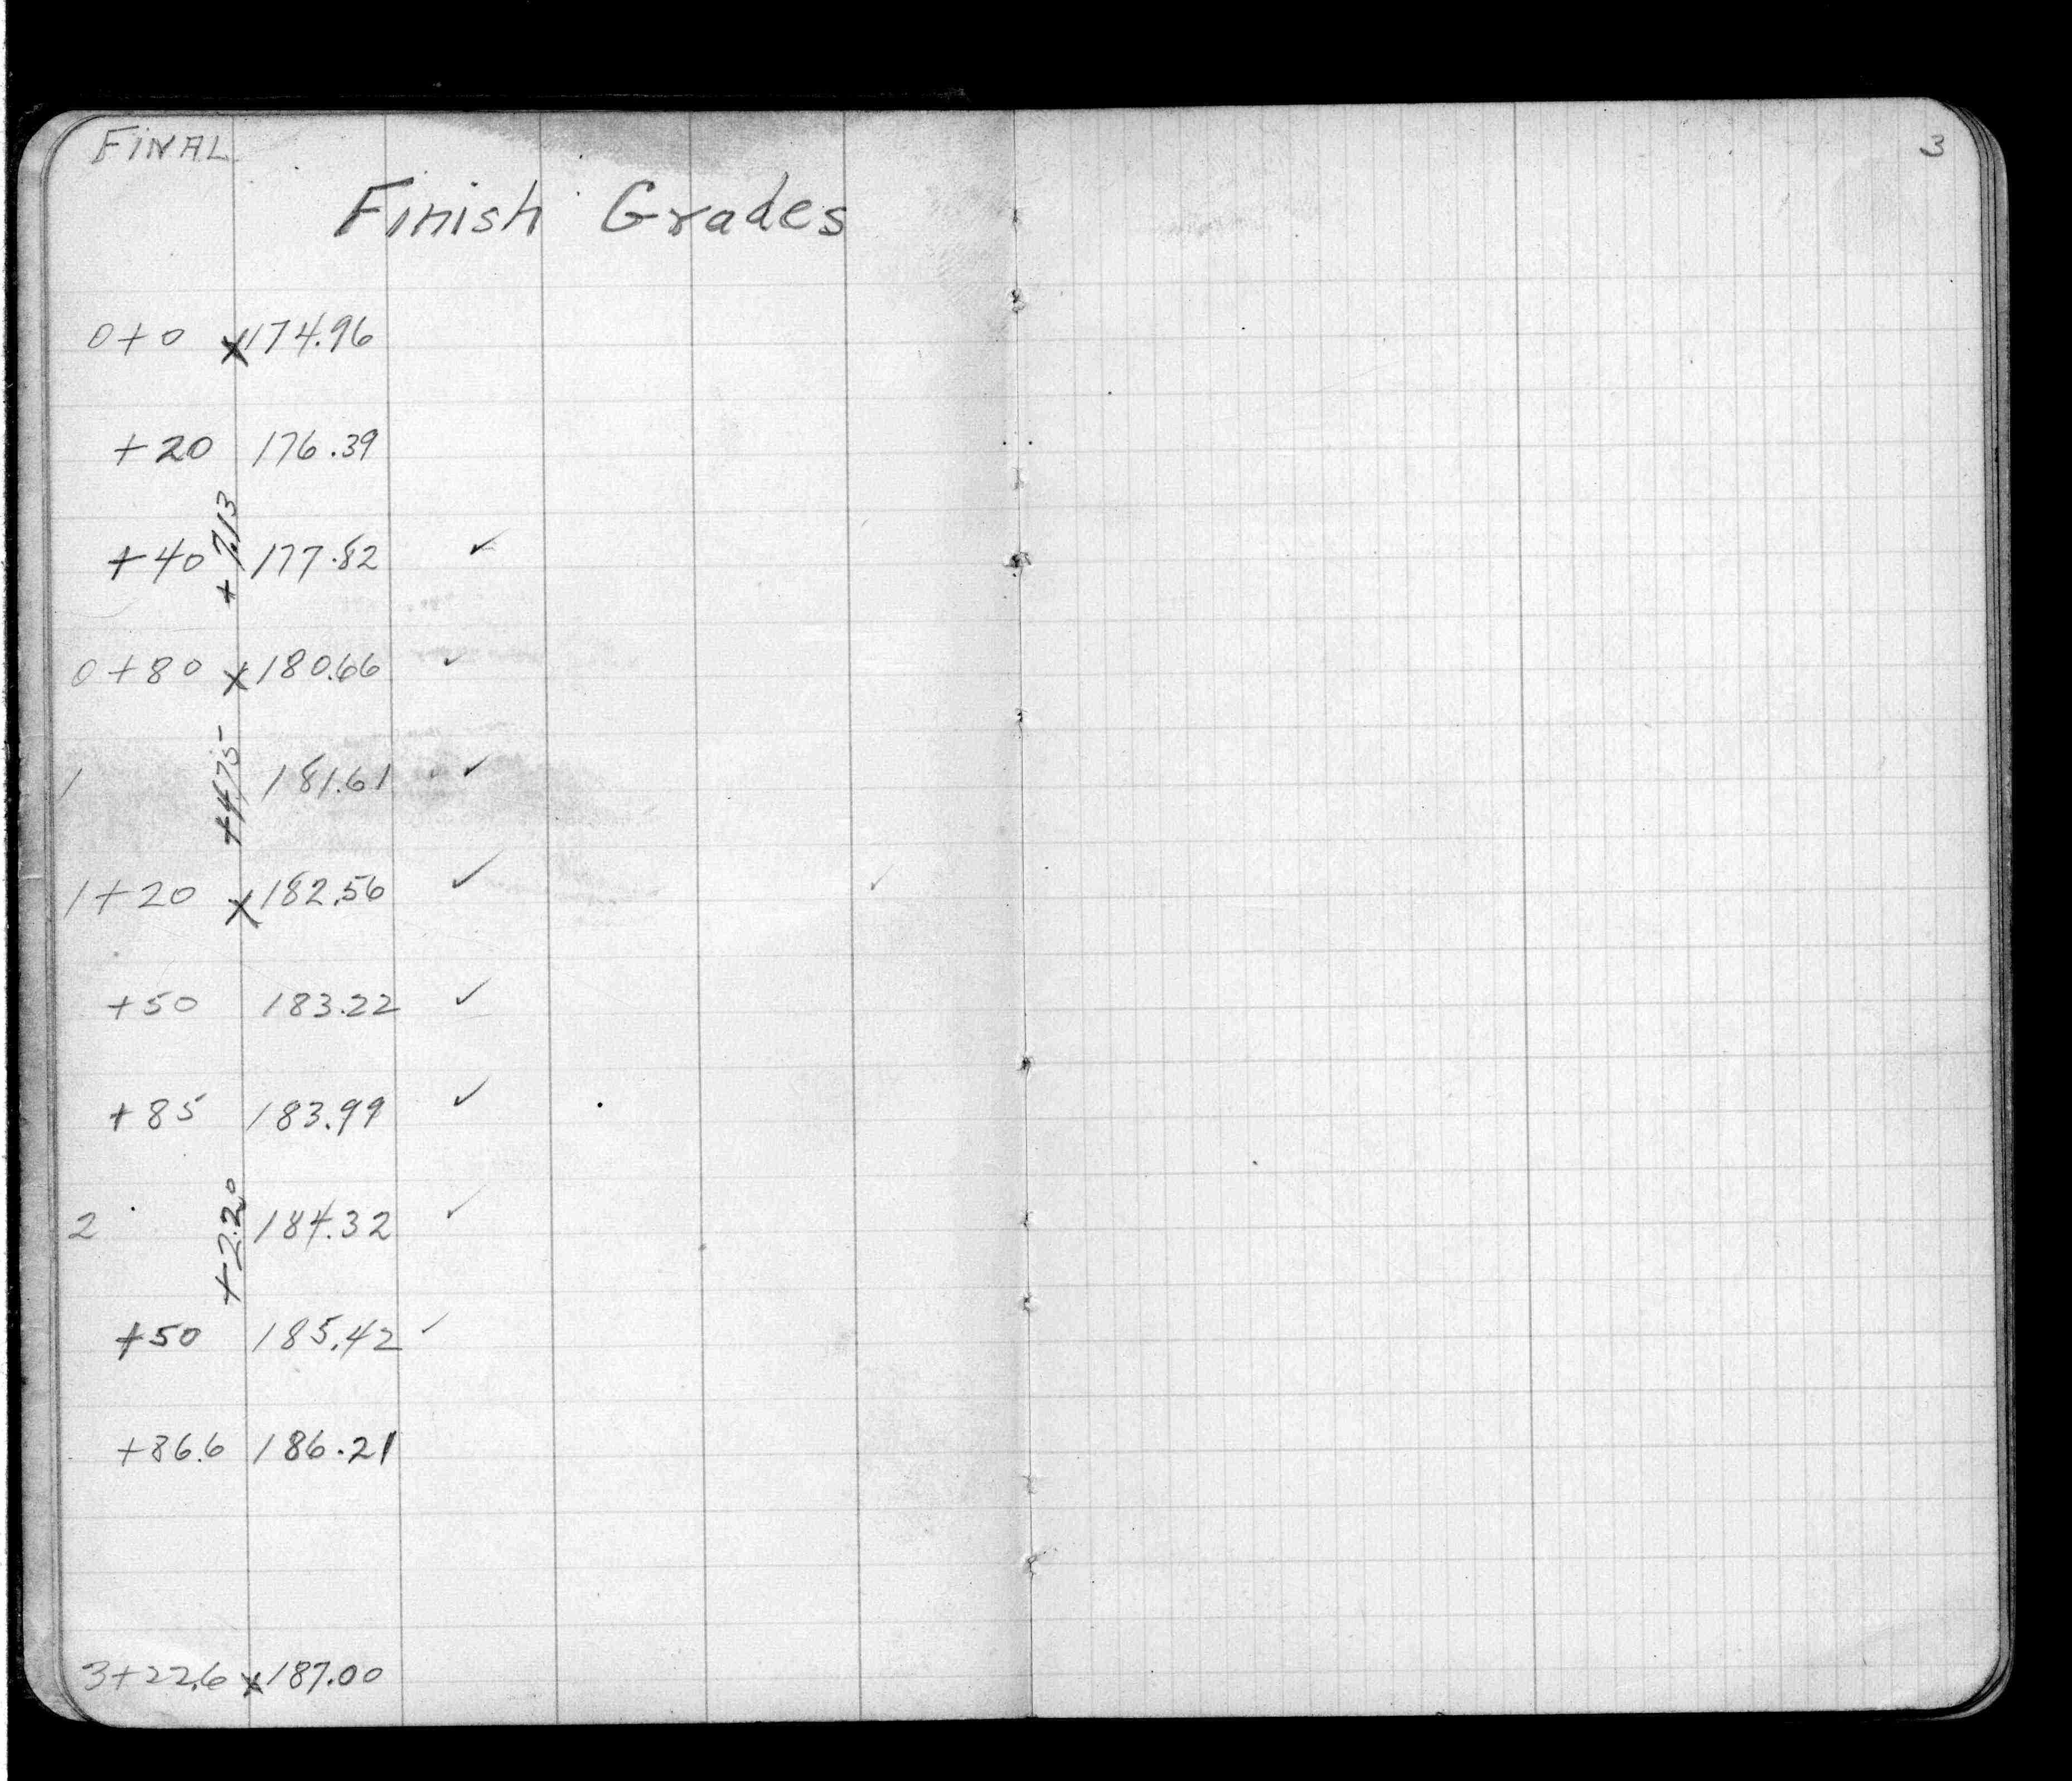 FINAL
3
Finish Grades
0+0 x 174.96
+20 176.39
+7.13
+40 177.82 ✓
0+80 x 180.66 ✓
+4.75
1 181.61 ✓
1+20 x 182.56 ✓ ✓
+50 183.22 ✓
+85 183.99 ✓
+2.20
2 184.32 ✓
+50 185.42 ✓
+86.6 186.21
3+22.6 x 187.00